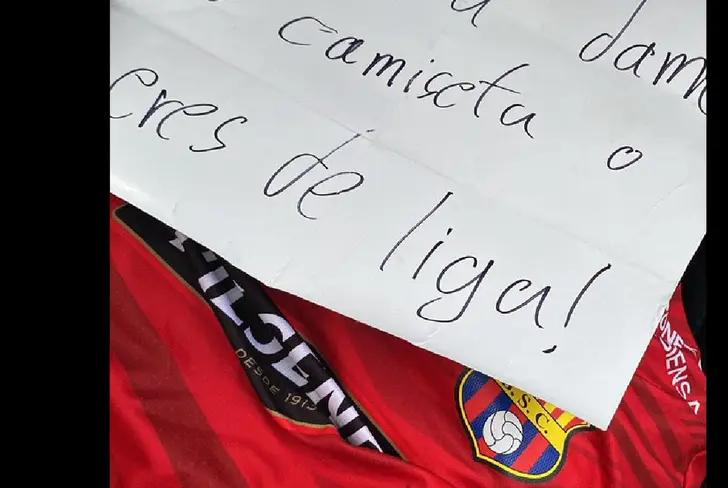 dam
camiseta o
eres de liga!
ILSENE
DESDE 1913
S.C.